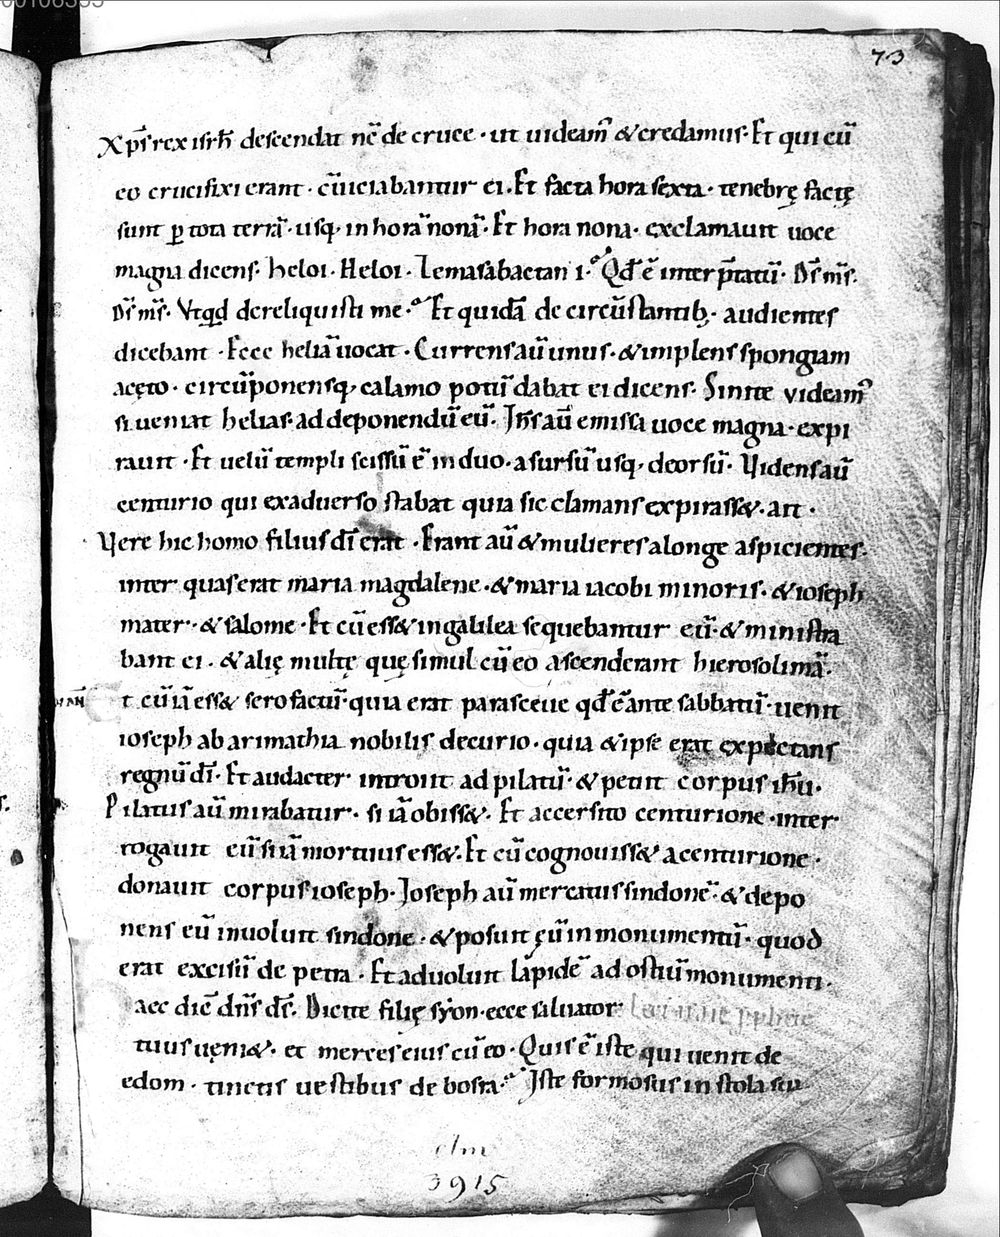 00106335
73
Xp̄s rex isrl̄ descendat nc̄ de cruce · ut uideam᷒ & credamus · Et qui cū
eo crucifixi erant · c̄uiciabantur ei · Et facta hora sexta · tenebrę factę
sunt p̱ totā terrā · usq; in horā nonā · Et hora nona · exclamauit uoce
magna dicens · heloi · Heloi · Lemasabactani · Qd̄ ē interp̄tatū · Ds̄ ms̄ ·
Ds̄ ms̄ · Vtqd dereliquisti me · Et quidā de circūstantib; · audientes
dicebant · Ecce heliā uocat · Currens aū unus · & implens spongiam
acęto · circūponensq; calamo potū dabat ei dicens · Sinite videam᷒
si ueniat helias · ad deponendū eū · Ih̄s aū emissa uoce magna · expi
rauit · Et uelū templi scissū ē in duo · a sursū usq; deorsū · Videns aū
centurio qui ex aduerso stabat quia sic clamans expirass& · ait ·
Vere hic homo filius dī erat · Erant aū & mulieres alonge aspicientes ·
inter quas erat maria magdalene · & maria iacobi minoris · & ioseph
mater · & salome · Et cū ess& in galilea sequebantur eū · & ministra
bant ei · & alię multę quę simul cū eo ascenderant hierosolimā ·
t cū iā ess& sero factū · quia erat parasceue qd̄ ē ante sabbatū · uenit
ioseph ab arimathia nobilis decurio · quia & ipse erat expectans
regnū dī · Et audacter introiit ad pilatū · & petiit corpus ih̄u ·
Pilatus aū mirabatur · si iā obiss& · Et accersito centurione · inter
rogauit eū si iā mortuus ess& · Et cū cognouiss& a centurione ·
donauit corpus ioseph · Ioseph aū mercatus sindonē · & depo
nens eū inuoluit sindone · & posuit eū in monumentū · quod
erat excisū de petra · Et aduoluit lapidē ad ostiū monumenti ·
aec dic̄ dn̄s ds̄ · Dicite filię syon · ecce saluator
tuus ueni& · et merces eius cū eo · Quis ē iste qui uenit de
edom · tinctis uestibus de bosra · Iste formosus in stola sua
clm
3915